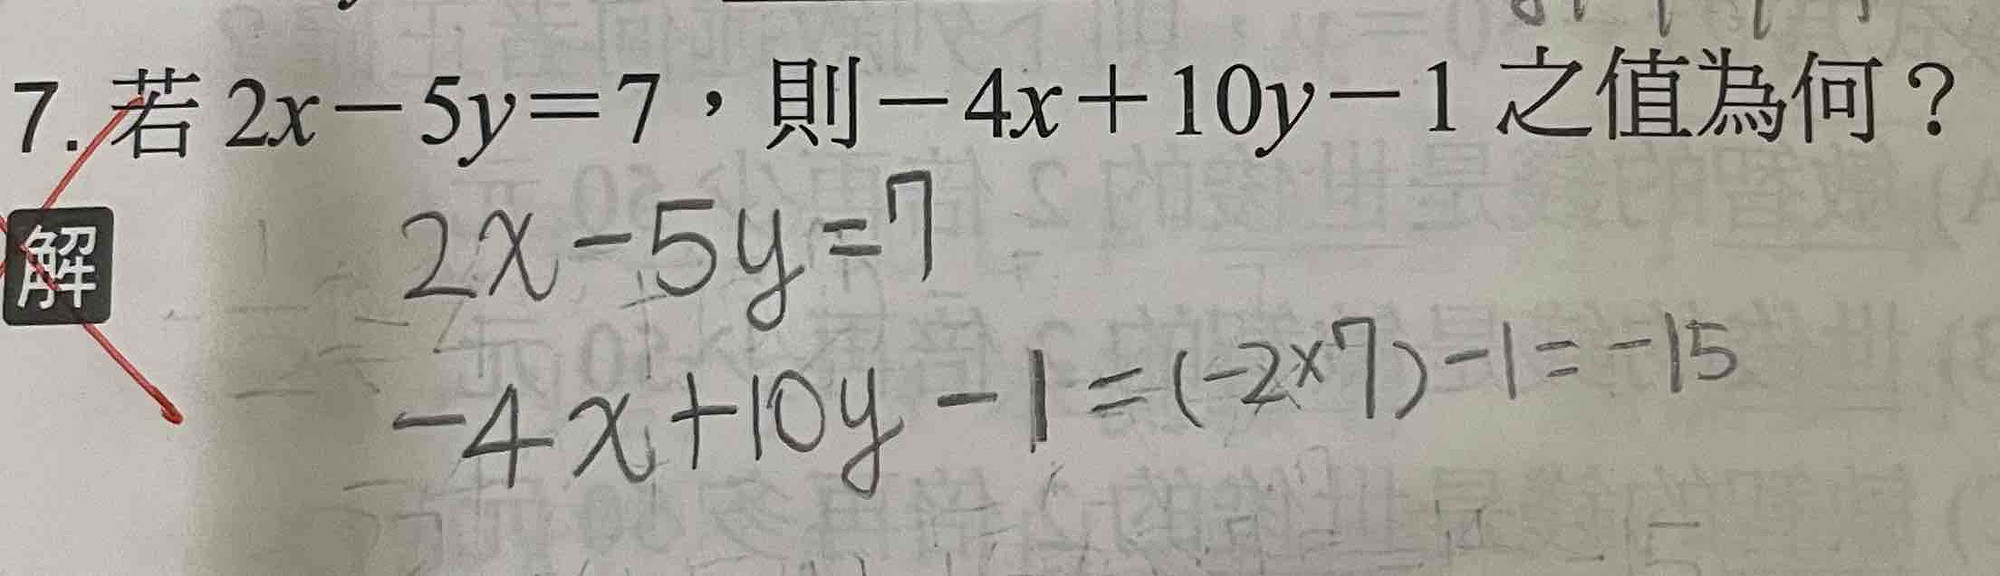 7. 若 2x－5y＝7，則－4x＋10y－1 之值為何？
解
2x-5y=7
-4x+10y-1=(-2×7)-1=-15